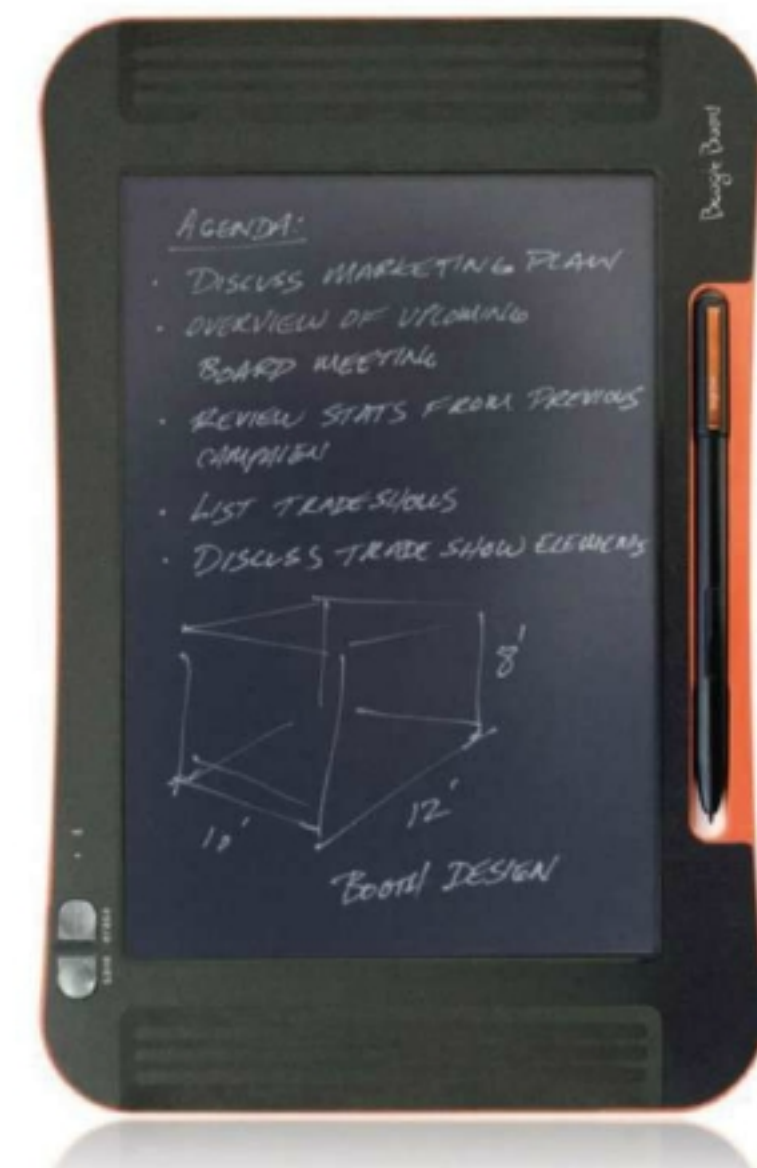 Boogie Board
AGENDA:
· DISCUSS MARKETING PLAN
· OVERVIEW OF UPCOMING
BOARD MEETING
· REVIEW STATS FROM PREVIOUS
CAMPAIGN
· LIST TRADESHOWS
· DISCUSS TRADE SHOW ELEMENTS
8'
12'
10'
BOOTH DESIGN
save erase